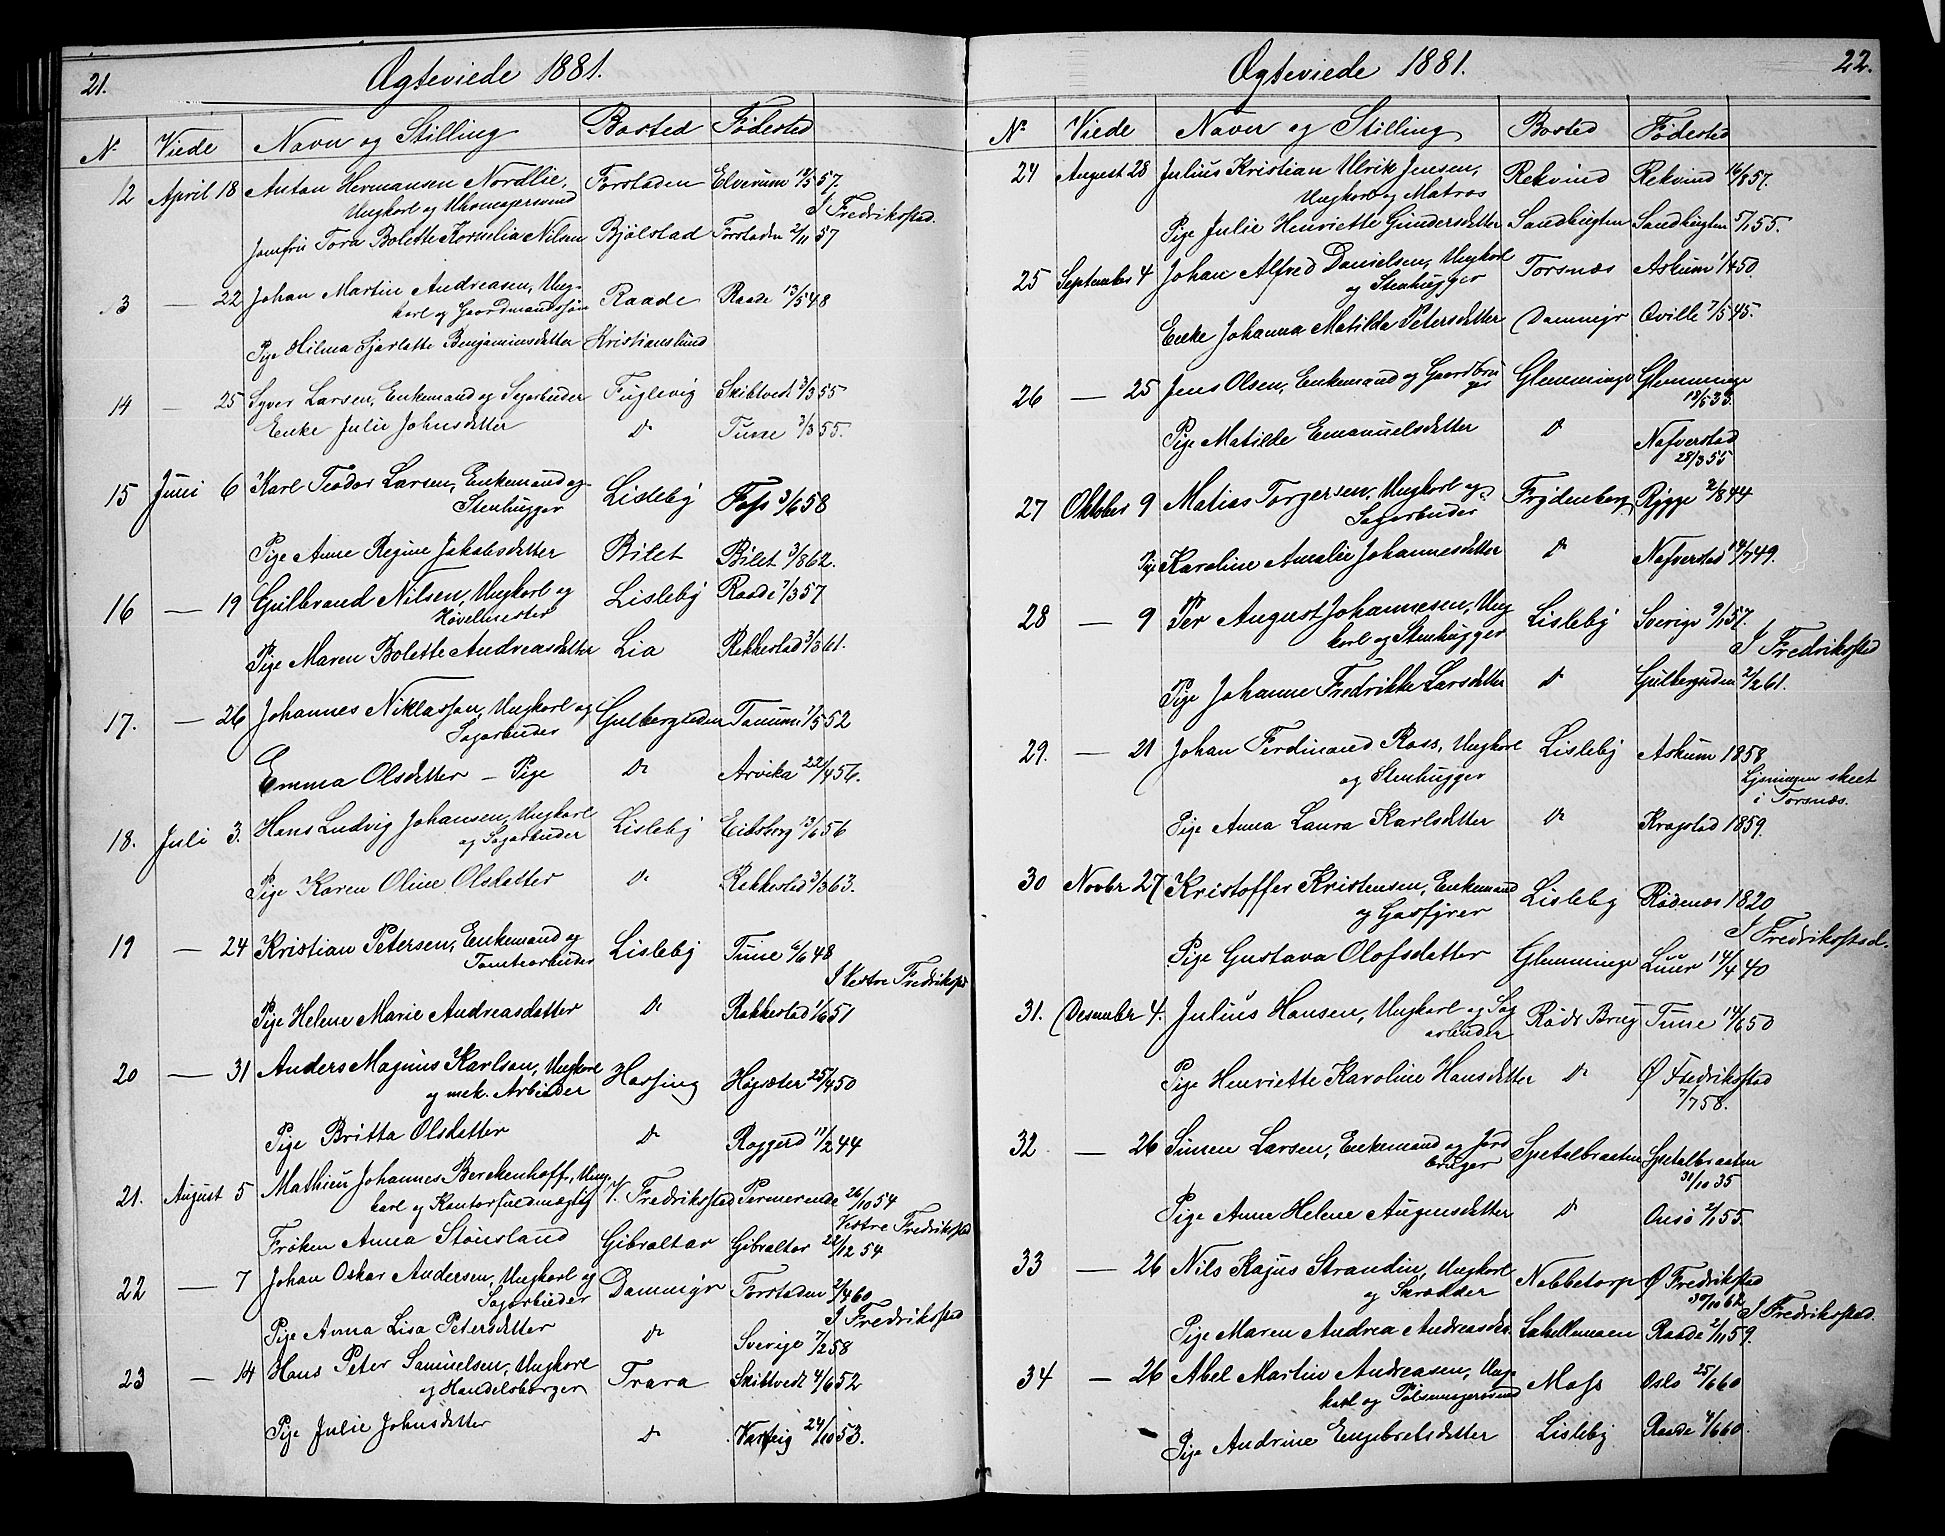 21.
Ægteviede 1881.
N. Viede Navn og Stilling Bosted Fødested
12 April 18 Antan Hermansen Nordlie, Forstaden Elverum 57.
Ungkarl og
I Fredrikstad.
Jomfru Tora Bolette Kornelia Nilsen Bjølstad Forstaden 2/11 57
13 — 22 Johan Martin Andreasen, Ung- Raade Raade 13/5 48
karl og Gaardmandssøn
Pige Hilma Sjarlatte Benjaminsdatter Kristianslund
14 — 25 Syver Larsen, Enkemand og Sagarbeider Fuglevig Skibtvedt 3/3 55
Enke Julie Johnsdatter Do Tune 2/3 55.
15 Juni 6 Karl Teodor Larsen, Enkemand og Lisleby Foss 3/6 58
Stenhugger
Pige Anne Regine Jakobsdatter Bilet Bilet 3/8 62.
16 — 19 Gulbrand Nilsen, Ungkarl og Lisleby Raade 2/3 57
Høvelmester
Pige Maren Bolette Andreasdatter Lia Rakkestad 3/3 61.
17. — 26 Johannes Niklassen, Ungkarl og Gulbergseden Tanum 1/5 52
Sagarbeider
Emma Olsdatter — Pige Do Arvika 22/4 56.
18. Juli 3. Hans Ludvig Johansen, Ungkarl Lisleby Eidsberg 56
og Sagarbeider
Pige Karen Oline Olsdatter Do Rakkestad 3/3 63.
19 — 24 Kristian Petersen, Enkemand og Lisleby Tune 6/6 48
Tomtearbeider
I Vestre Fredrikstad
Pige Helene Marie Andreasdatter Do Rakkestad 1/6 51
20 — 31 Anders Magnus Karlson, Ungkarl Hassing Høgsæter 25/4 50
og mek. Arbeider
Pige Britta Olsdatter Do Roggerd 44
21. August 5 Mathieu Johannes Berckenhoff, Ung- V. Fredrikstad Permerende 26/10 54
karl og Kontorfuldmægtig
Vestre Fredrikstad
Frøken Anna Stousland Gibraltar Gibraltar 22/12 54
22 — 7 Johan Oskar Andersen, Ungkarl og Dammyr Forstaden 2/4 60
Sagarbeider
I Fredrikstad
Pige Anna Lisa Petersdatter Do Sverige 7/2 58
23 — 14 Hans Peter Samuelsen, Ungkarl Trara Skibtvedt 4/6 52
og Handelsborger
Pige Julie Johnsdatter Do Varteig 24/10 53.
22.
Ægteviede 1881.
No Viede Navn og Stilling Bosted Fødested
24 August 28 Julius Kristian Ulrik Jensen, Rekvind Rekvind 57.
Ungkarl og Matros
Pige Julie Henriette Gundersdatter Sandbugten Sandbugten 5/1 55.
25 September 4 Johan Alfred Danielsen, Ungkarl Torsnæs Askum 1/4 50.
og Stenhugger
Enke Johanna Matilda Petersdatter Dammyr Qville 7/5 45.
26 — 25 Jens Olsen, Enkemand og Gaardbru Glemminge Glemminge
ger
18/5 33.
Pige Matilde Emanuelsdatter Do Nafverstad
28/3 55
27 Oktober 9 Matias Torgersen, Ungkarl og Frydenberg Rygge 2/8 44
Sagarbeider
Pige Karoline Amalie Johannesdatter Do Nafverstad 49.
28 — 9 Per August Johannesen, Ung Lisleby Sverige 9/1 57.
karl og Stenhugger
I Fredrikstad
Pige Johanne Fredrikke Larsdatter Do Gulbergseden 2/2 61.
29. — 21 Johan Ferdinand Ross, Ungkarl Lisleby Askum 1858
og Stenhugger
Lysningen skeet
i Torsnæs.
Pige Anna Laura Karlsdatter Do Kragstad 1859.
30 Novbr 27 Kristoffer Kristensen, Enkemand Lisleby Rødenæs 1820
og Gasfyrer
I Fredrikstad.
Pige Gustava Olofsdatter Glemminge Luur 14/4 40
31. Desember 4. Julius Hansen, Ungkarl og Sag Røds Brug Tune 14/6 50
arbeider
Pige Henriette Karoline Hansdatter Do Ø Fredrikstad
7/7 58.
32 — 26 Simen Larsen, Enkemand og Jord Spetalbraaten Spetalbraaten
bruger
31/10 35
Pige Anne Helene Augensdatter Do Onsø 2/1 55.
33 — 26 Nils Kajus Strandin, Ungkarl Nabbetorp Ø Fredrikstad
og Skrædder
30/10 62
I Fredrikstad.
Pige Maren Andrea Andreasdtr Labellmoen Raade 2/11 59.
34 — 26 Abel Martin Andreasen, Ung- Moss Oslo 25/6 60
karl og Pølsemagersvend
Pige Andrine Engebretsdatter Lisleby Raade 4/6 60.